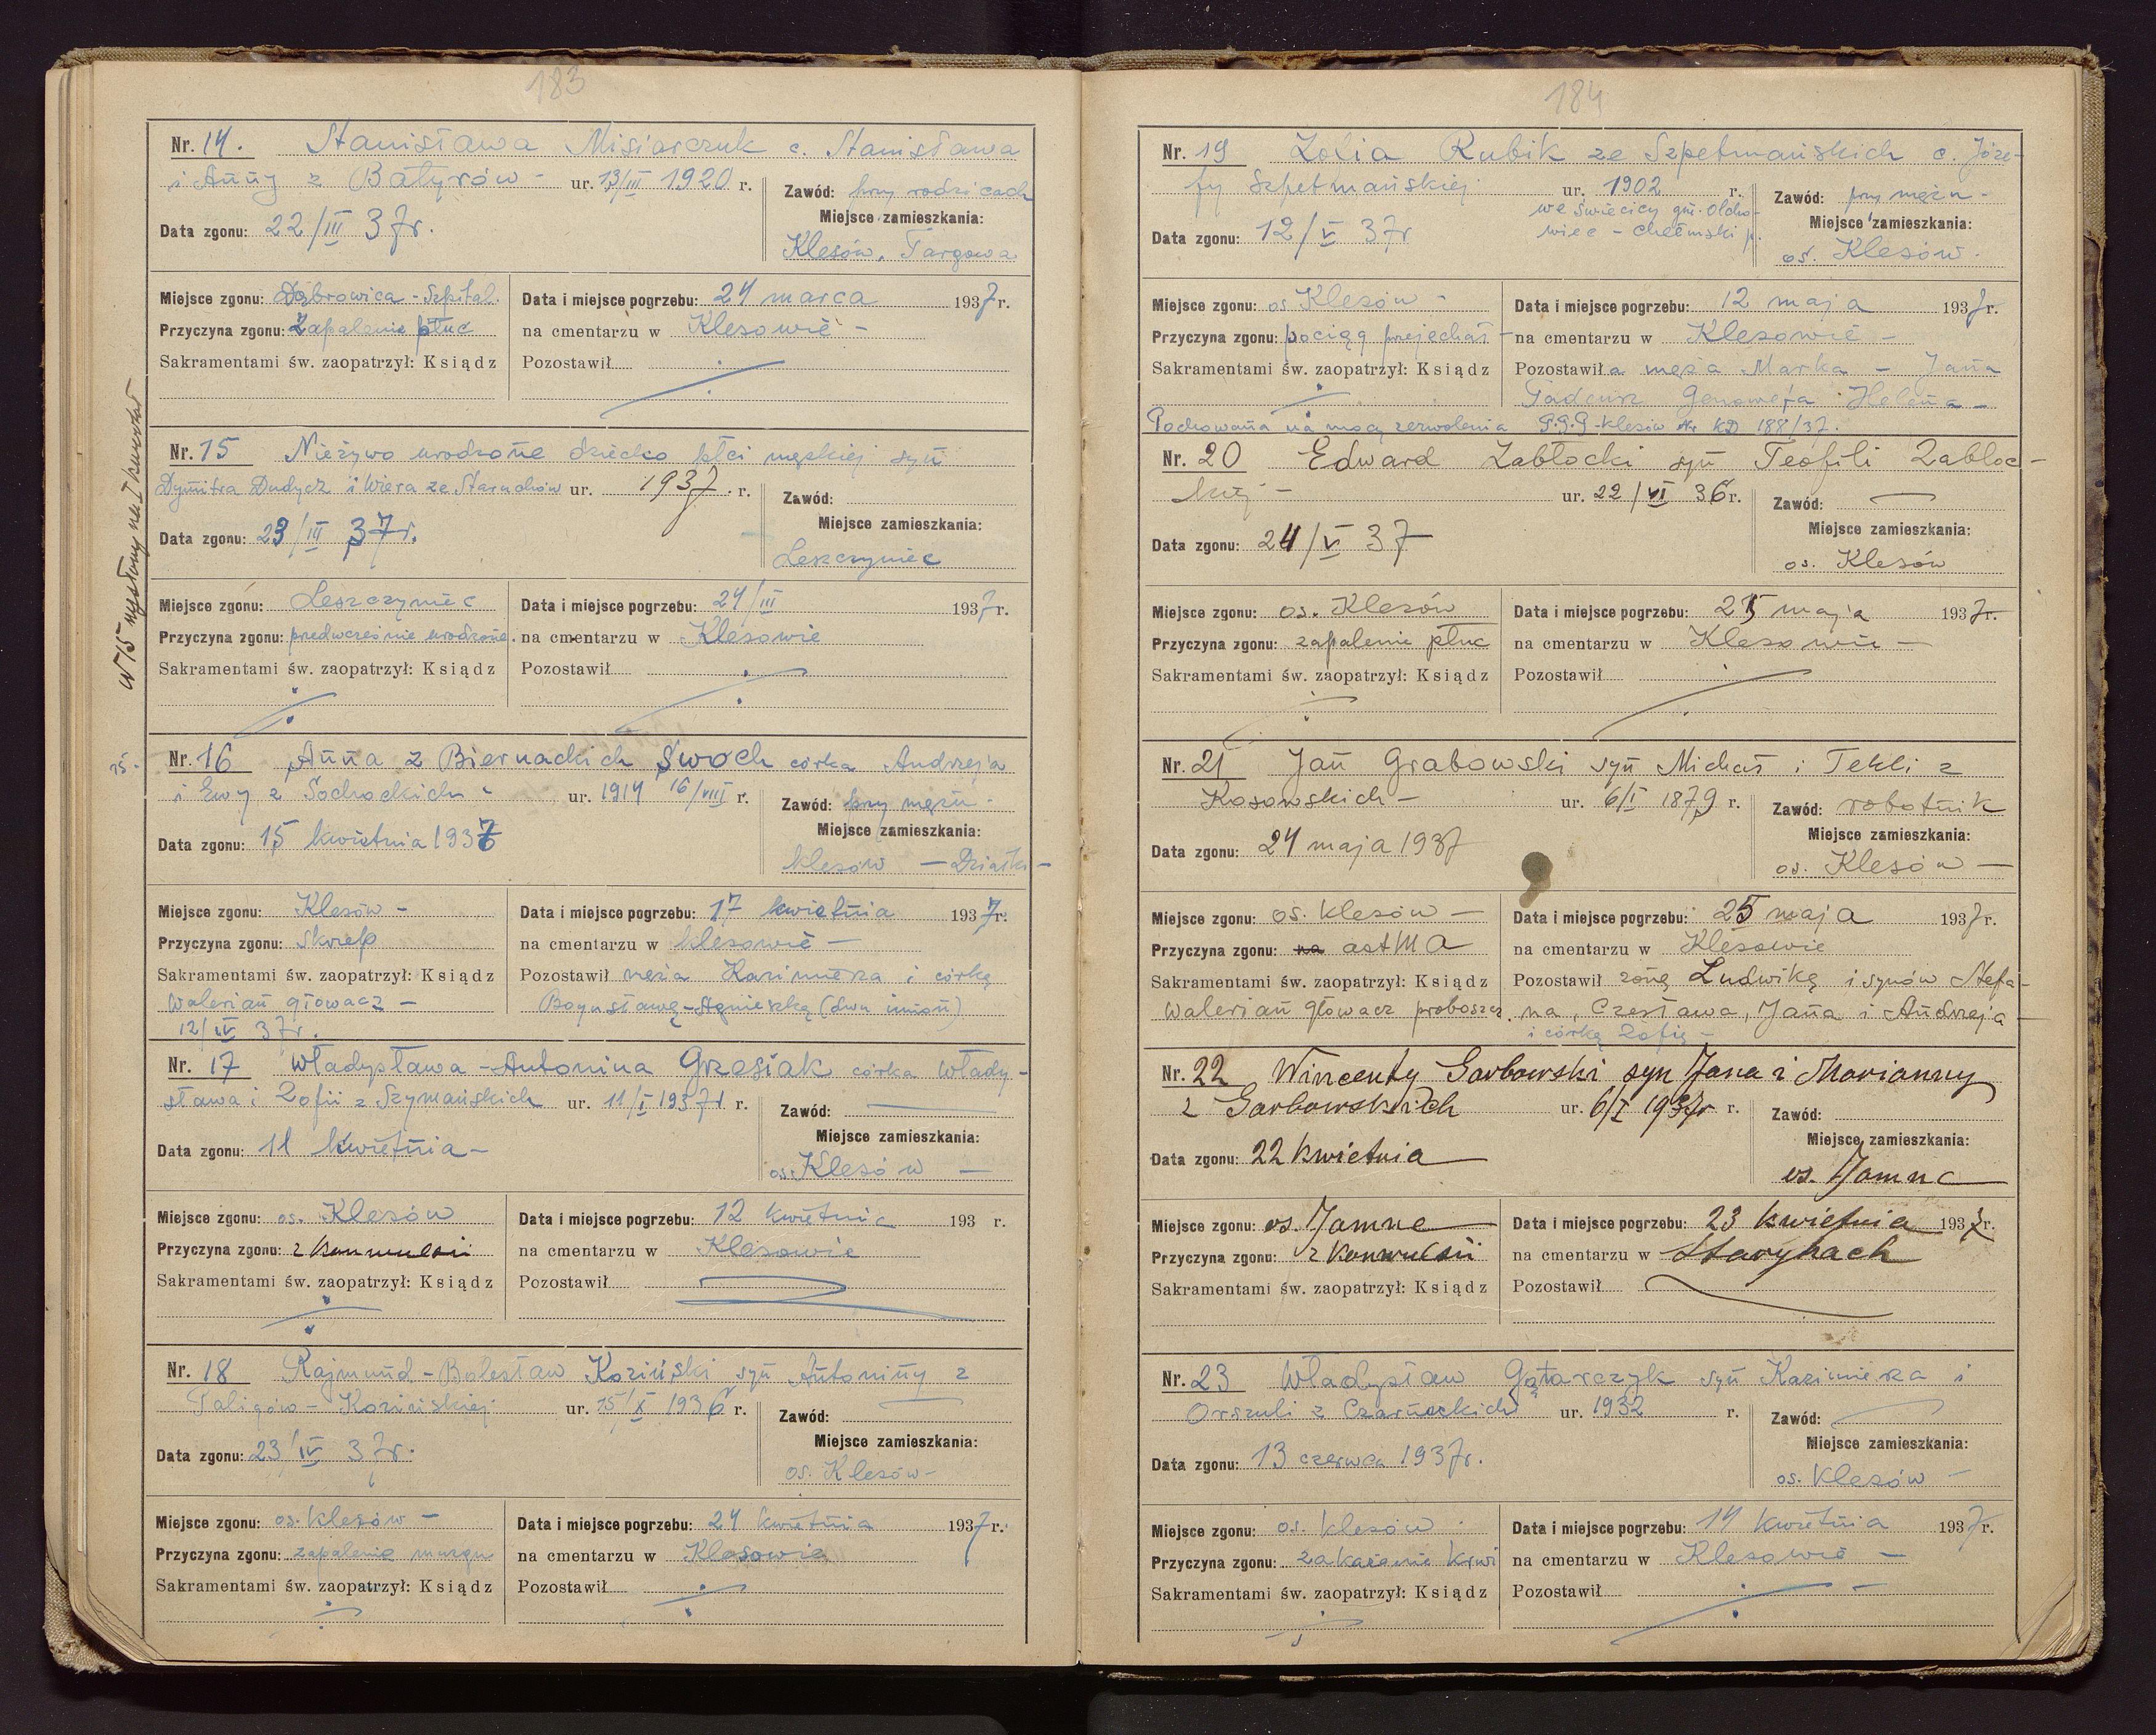 183
Nr. 14. Stanisława Misiarczuk c. Stanisława
i Anny z Batyrów - ur. 13/III 1920 r.
Zawód: przy rodzicach
Data zgonu: 22/III 37r.
Miejsce zamieszkania:
Klesów, Targowa
Miejsce zgonu: Dąbrowica - Szpital.
Data i miejsce pogrzebu: 24 marca 1937 r.
Przyczyna zgonu: Zapalenie płuc
na cmentarzu w Klesowie -
Sakramentami św. zaopatrzył: Ksiądz
Pozostawił
Nr. 15 Nieżywo urodzone dziecko płci męskiej syn
Dymitra Dudycz i Wiera ze Staruchów ur. 1937. r.
Zawód:
Data zgonu: 23/III 37r.
Miejsce zamieszkania:
Leszczyniec
Miejsce zgonu: Leszczyniec
Data i miejsce pogrzebu: 24/III 1937 r.
Przyczyna zgonu: przedwcześnie urodzone.
na cmentarzu w Klesowie
Sakramentami św. zaopatrzył: Ksiądz
Pozostawił
N 15 wysłany na I kwartał
15.
Nr. 16 Anna z Biernackich Swoch córka Andrzeja
i Ewy z Sochockich - ur. 1914 16/VIII r.
Zawód: przy mężu -
Data zgonu: 15 kwietnia 1937
Miejsce zamieszkania:
Klesów - Działki -
Miejsce zgonu: Klesów -
Data i miejsce pogrzebu: 17 kwietnia 1937 r.
Przyczyna zgonu: Skrzep
na cmentarzu w Klesowie -
Sakramentami św. zaopatrzył: Ksiądz
Walerian Głowacz -
12/IV 37r.
Pozostawił męża Kazimierza i córkę
Bogusławę-Agnieszkę (dwu imion)
Nr. 17 Władysława - Antonina Grzesiak córka Włady-
sława i Zofii z Szymańskich ur. 11/I 1937r r.
Zawód:
Data zgonu: 11 kwietnia -
Miejsce zamieszkania:
os. Klesów -
Miejsce zgonu: os. Klesów
Data i miejsce pogrzebu: 12 kwietnia 193 r.
Przyczyna zgonu: z konwulsii
na cmentarzu w Klesowie
Sakramentami św. zaopatrzył: Ksiądz
Pozostawił
Nr. 18 Rajmund - Bolesław Koziński syn Antoniny z
Taligów - Kozińskiej ur. 15/X 1936 r.
Zawód:
Data zgonu: 23/IV 37r.
Miejsce zamieszkania:
os. Klesów -
Miejsce zgonu: os. Klesów -
Data i miejsce pogrzebu: 24 kwietnia 1937 r.
Przyczyna zgonu: zapalenie mózgu
na cmentarzu w Klesowie
Sakramentami św. zaopatrzył: Ksiądz
Pozostawił
184
Nr. 19 Zofia Rubik ze Szpetmańskich c. Józe-
fy Szpetmańskiej ur. 1902 r.
we Święcicy gm. Olcho-
wiec - chełmski p.
Zawód: przy mężu -
Data zgonu: 12/V 37r
Miejsce zamieszkania:
os. Klesów -
Miejsce zgonu: os Klesów -
Data i miejsce pogrzebu: 12 maja 1937 r.
Przyczyna zgonu: pociąg przejechał -
na cmentarzu w Klesowie -
Sakramentami św. zaopatrzył: Ksiądz
Pozostawiła męża Marka - Jana
Tadeusz Genowefa Helena -
Pochowana na mocy zezwolenia P.G.G - Klesów Nr KD 188/37.
Nr. 20 Edward Zabłocki syn Teofili Zabłoc-
kiej - ur. 22/VI 36 r.
Zawód:
Data zgonu: 24/V 37
Miejsce zamieszkania:
os. Klesów
Miejsce zgonu: os. Klesów
Data i miejsce pogrzebu: 25 maja 1937 r.
Przyczyna zgonu: zapalenie płuc
na cmentarzu w Klesowie -
Sakramentami św. zaopatrzył: Ksiądz
Pozostawił
Nr. 21 Jan Grabowski syn Michał i Tekli z
Kosowskich - ur. 6/I 1879 r.
Zawód: robotnik
Data zgonu: 24 maja 1937
Miejsce zamieszkania:
os. Klesów -
Miejsce zgonu: os. Klesów -
Data i miejsce pogrzebu: 25 maja 1937 r.
Przyczyna zgonu: na astma
na cmentarzu w Klesowie
Sakramentami św. zaopatrzył: Ksiądz
Walerian Głowacz proboszcz.
Pozostawił żonę Ludwikę i synów Stefa-
na, Czesława, Jana i Andrzeja -
i córkę Zofię -
Nr. 22 Wincenty Garbowski syn Jana i Marianny
z Garbowskich ur. 6/I 1937r r.
Zawód:
Data zgonu: 22 kwietnia
Miejsce zamieszkania:
os. Jamne
Miejsce zgonu: os. Jamne
Data i miejsce pogrzebu: 23 kwietnia 1937 r.
Przyczyna zgonu: z konwulsii
na cmentarzu w Starykach
Sakramentami św. zaopatrzył: Ksiądz
Pozostawił
Nr. 23 Władysław Gątarczyk syn Kazimierza i
Orszuli z Czarneckich ur. 1932 r.
Zawód:
Data zgonu: 13 czerwca 1937r.
Miejsce zamieszkania:
os. Klesów -
Miejsce zgonu: os. Klesów
Data i miejsce pogrzebu: 14 kwietnia 1937 r.
Przyczyna zgonu: zakażenie krwi
na cmentarzu w Klesowie -
Sakramentami św. zaopatrzył: Ksiądz
Pozostawił